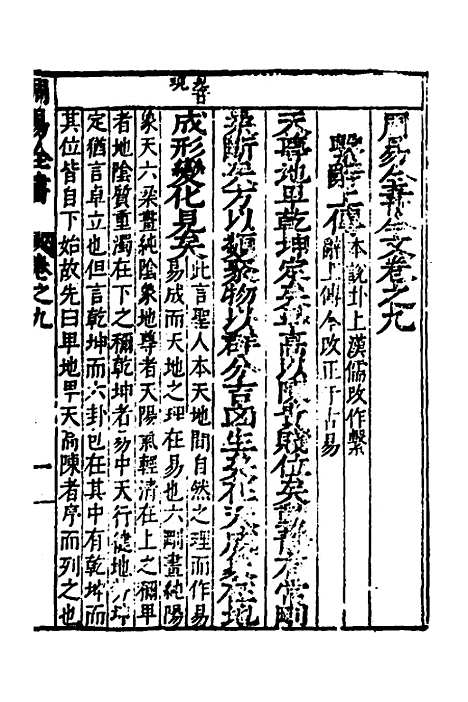 周易全書今文卷之九
繫辭上傳 本說卦上漢儒改作繫
辭上傳今改正于古易
天尊地卑乾坤定矣卑高以陳貴賤位矣動靜有常剛
柔斷矣方以類聚物以群分吉凶生矣在天成象在地
成形變化見矣 此言聖人本天地間自然之理而作易
易成而天地之理在易也六畫純陽
象天六畫純陰象地尊者天陽氣輕清在上之稱卑
者地陰質重濁在下之稱乾坤者易中天行健地勢坤
定猶言卓立也但言乾坤而六卦已在其中有乾坤而
其位皆自下始故先曰卑地卑天高陳者序而列之也
周易全書
卷之九
一
現